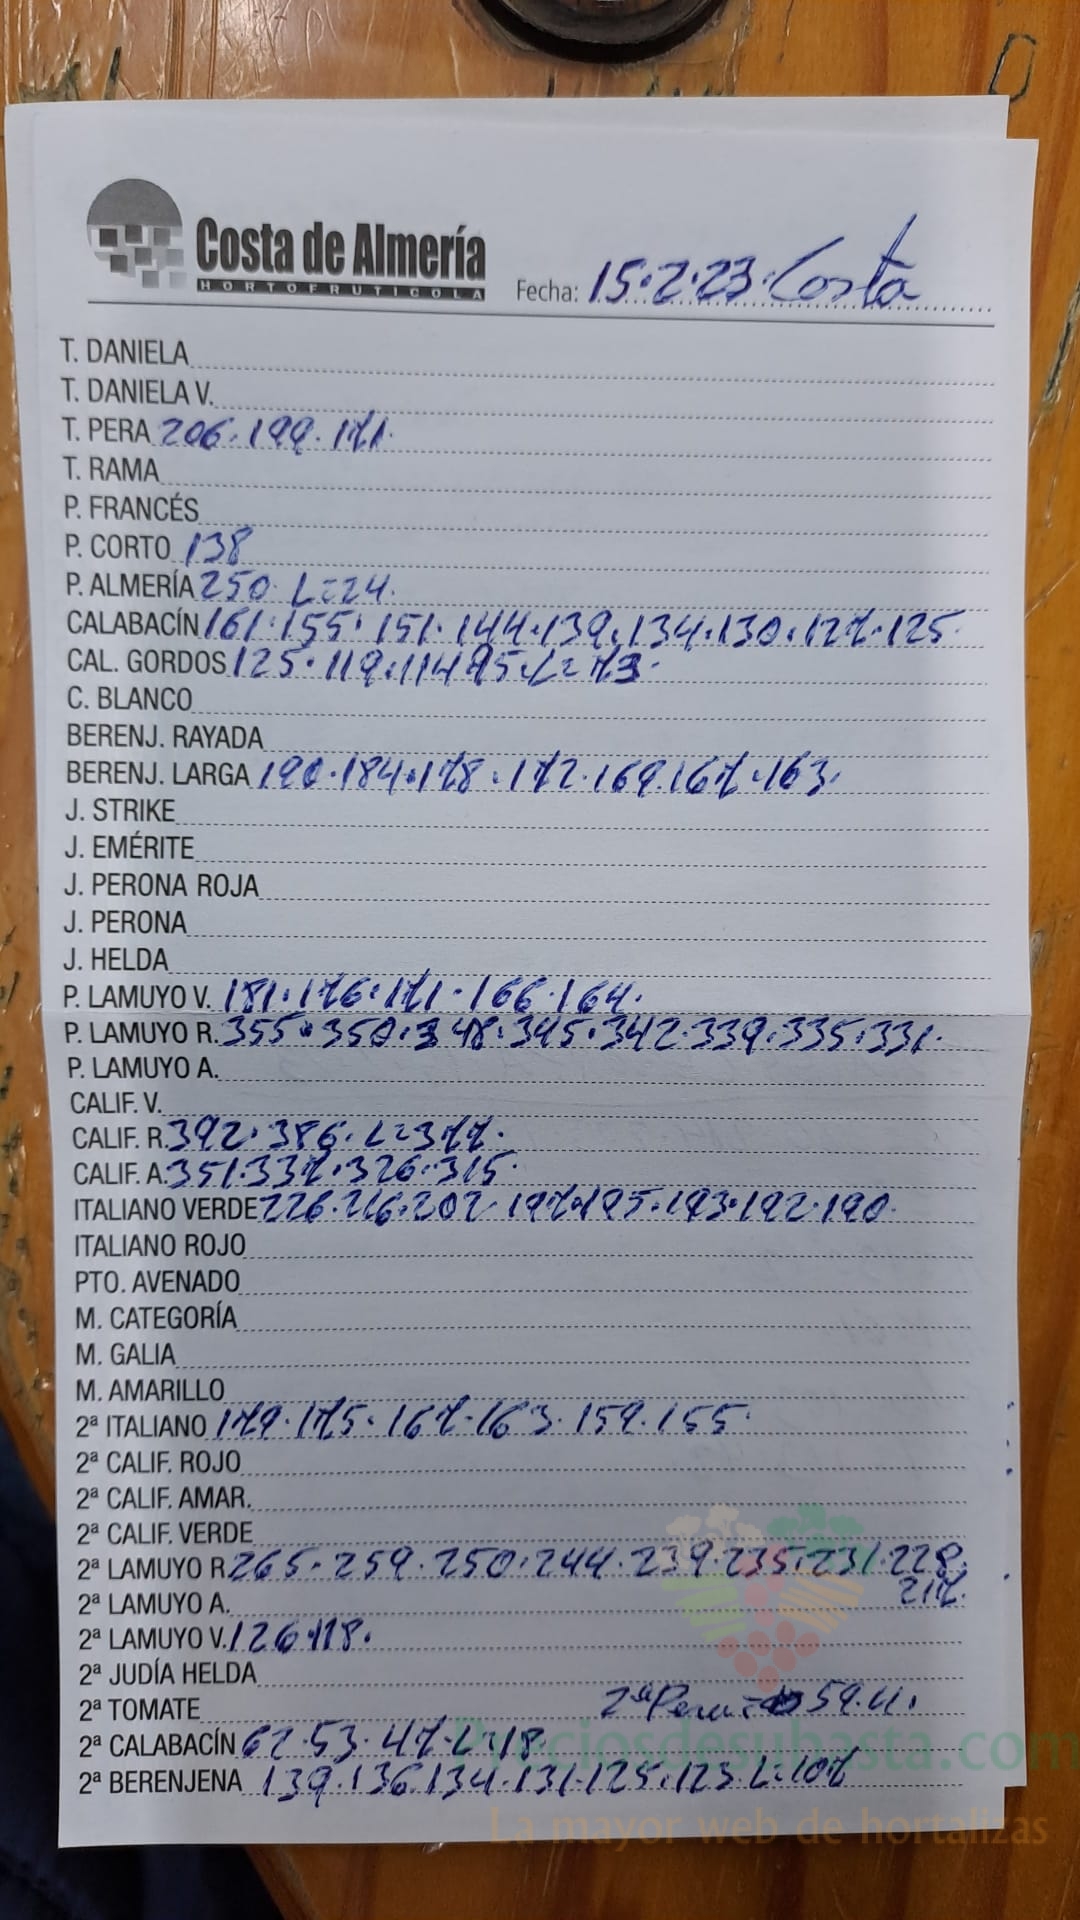 Costa de Almería
HORTOFRUTICOLA
Fecha: 15.2.23. Costa
T. DANIELA
T. DANIELA V.
T. PERA 206. 199. 171.
T. RAMA
P. FRANCÉS
P. CORTO 138
P. ALMERÍA 250 L=24.
CALABACÍN 161. 155. 151. 144. 139. 134. 130. 127. 125.
CAL. GORDOS 125. 119. 114 95. L= 73.
C. BLANCO
BERENJ. RAYADA
BERENJ. LARGA 190. 184. 178. 172. 169. 167. 163.
J. STRIKE
J. EMÉRITE
J. PERONA ROJA
J. PERONA
J. HELDA
P. LAMUYO V. 181. 176. 171. 166. 164.
P. LAMUYO R. 355. 350. 348. 345. 342. 339. 335. 331.
P. LAMUYO A.
CALIF. V.
CALIF. R. 392. 386. L=377.
CALIF. A. 351. 337. 326. 315.
ITALIANO VERDE 226. 216. 202. 197. 195. 193. 192. 190.
ITALIANO ROJO
PTO. AVENADO
M. CATEGORÍA
M. GALIA
M. AMARILLO
2ª ITALIANO 179. 175. 167. 163. 159. 155.
2ª CALIF. ROJO
2ª CALIF. AMAR.
2ª CALIF. VERDE
2ª LAMUYO R 265. 259. 250. 244. 239. 235. 231. 228.
217.
2ª LAMUYO A.
2ª LAMUYO V. 126. 118.
2ª JUDÍA HELDA
2ª TOMATE 2ª Pera = 59.
2ª CALABACÍN 62. 53. 47. L. 18
2ª BERENJENA 139. 136. 134. 131. 125. 123. L=107
Preciosdesubasta.com
La mayor web de hortalizas